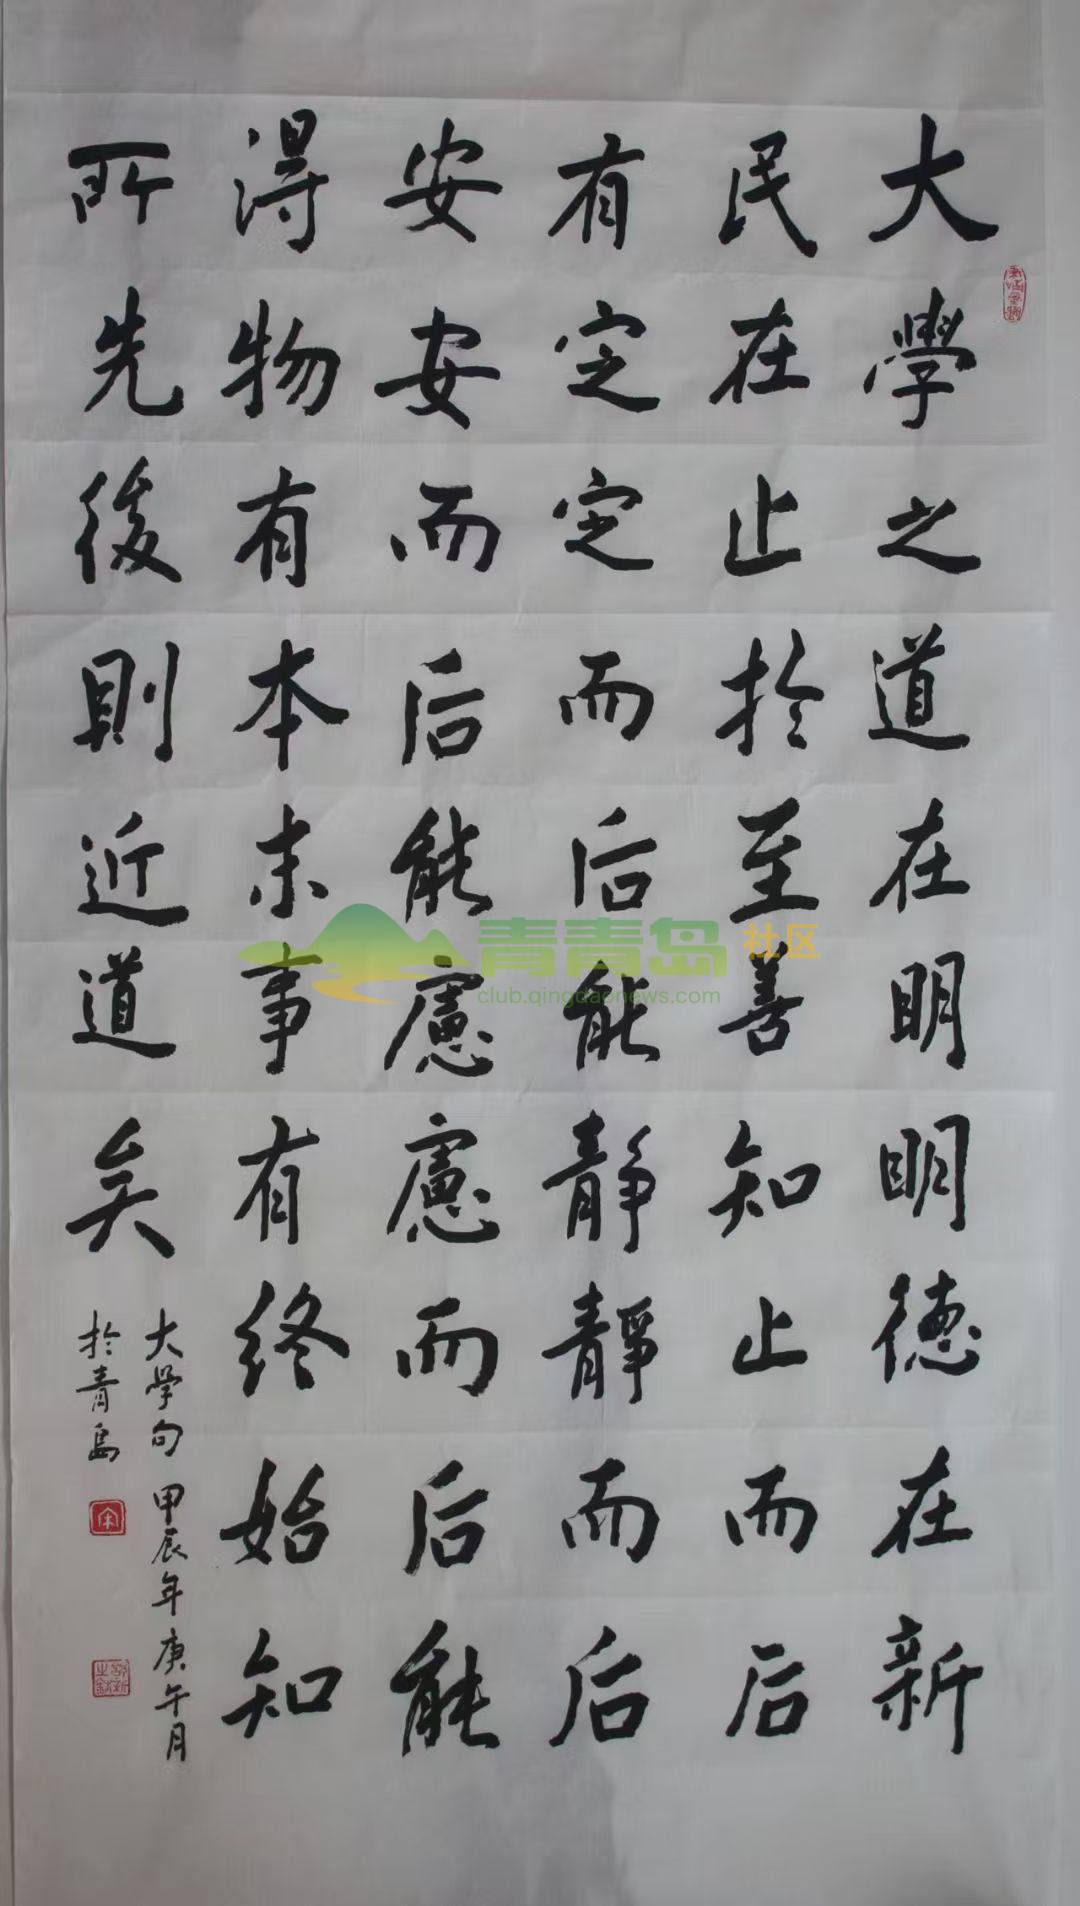 大學之道在明明德在新
民在止於至善知止而后
有定定而后能靜靜而后
安安而后能慮慮而后能
得物有本末事有终始知
所先後則近道矣
大学句甲辰年庚午月
於青島
青青岛社区
club.qingdaonews.com